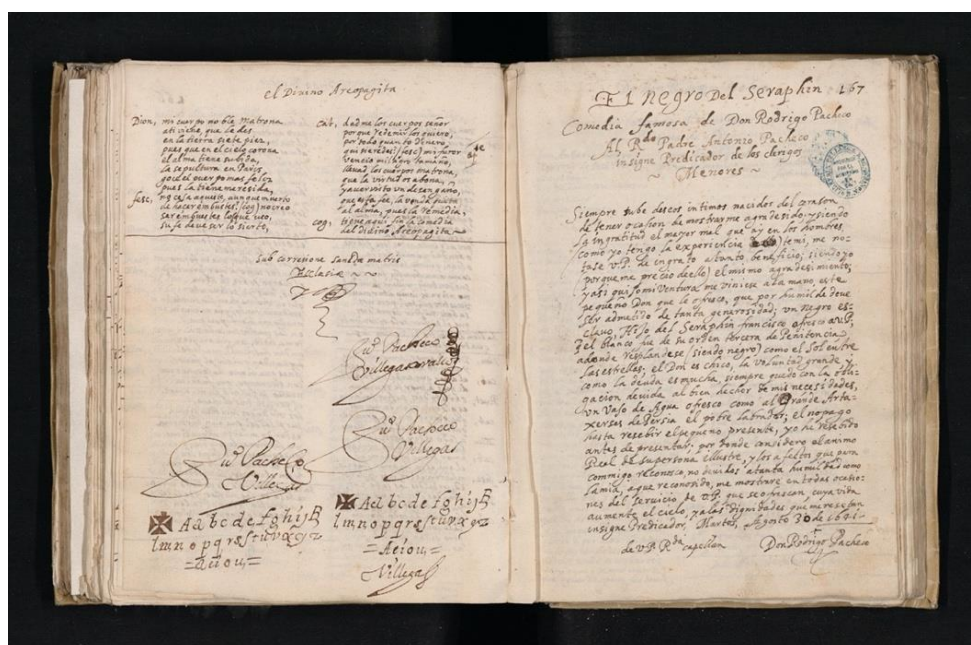 el Divino Areopagita
Dion, mi cuerpo noble Matrona
ati viene, que le des
en la tierra siete pies,
pues que en el cielo corona
el alma tiene subida,
la sepultura en Paris
goce el cuerpo mas feliz
pues la tiene meresida,
fesc,
ser embustes lo que veo,
su fe deve ser lo sierto,
cat, dadme los cuerpos señor
porque redemir los quiero,
por todo quanto dinero,
quisieredes, (fesc) mi furor
llevad los cuerpos matrona,
que la virtud os abona,
que esta fee, la venda quita
al alma, pues la remedia,
cog, tiene aqui fin la comedia
del divino Areopagita
Sub corresione Sanctæ matris
Ecclesiæ
Pacheco
Villegas
Pacheco
Villegas
Pacheco
Villegas
Aa b c d e f g h i j
l m n o p q r s t u v x y z
= a e i o u, =
Aa b c d e f g h i j
l m n o p q r s t u v x y z
= A e i o u, =
Villegas
El negro Del Seraphin 167
Comedia famosa de Don Rodrigo Pacheco
Al Rdo Padre Antonio Pacheco
insigne Predicador de los clerigos
~ Menores ~
Siempre tube deseos intimos nacidos del corason
de tener ocasion de mostrarme agradesido, y siendo
la ingratitud el mayor mal que ay en los hombres
(como yo tengo la experiencia) temi, me no-
tase V.P. de ingrato a tanto beneficio; siendo yo
(porque me precio dello) el mismo agradesimiento;
y asi quiso mi ventura me viniese a la mano, este
pequeño Don que le ofresco, que por humilde deve
ser admitido de tanta generosidad; un negro es-
clavo, Hijo del Seraphin francisco ofresco a V.P,
y el blanco fue de su orden tercera de Penitencia,
adonde resplandese (siendo negro) como el Sol entre
las estrellas; el Don es chico, la voluntad grande y
como la deuda es mucha, siempre quedo con la obli-
gacion devida al bien hechor de mis necesidades,
un vaso de Agua ofresco como al Grande Arta-
xerses de Persia el pobre labrador; el no pago
hasta resebir el pequeño presente, yo he resebido
antes de presentar; por donde considero el animo
Real de su persona illustre, y los afectos que para
commigo reconosco, no devidos a tanta humildad como
la mia, a que reconosido, me mostrare en todas ocasio-
nes del servicio de V.P. que se ofrescan, cuya vida
aumente el cielo, y a las dignidades que meresen tan
insigne Predicador, Martes, Agosto 30 de 1641.
de V.P. Rda capellan Don Rodrigo Pacheco